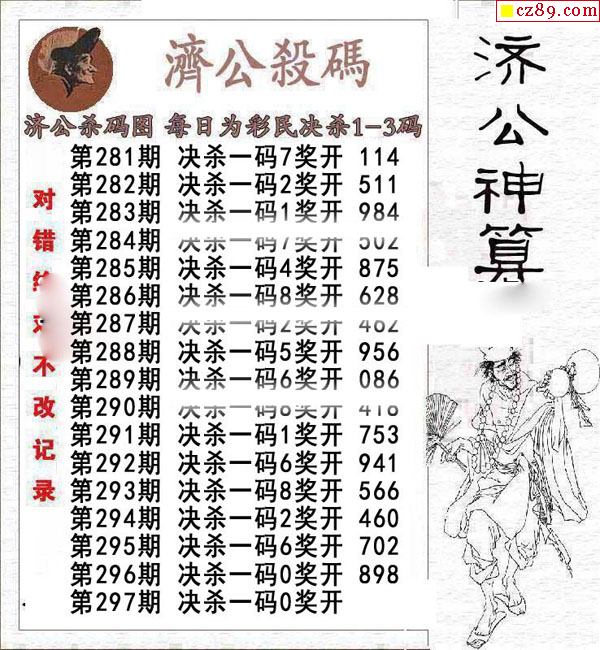 cz89.com
濟公殺碼
济公杀码图 每日为彩民决杀1-3码
第281期 决杀一码7奖开 114
第282期 决杀一码2奖开 511
第283期 决杀一码1奖开 984
第284期 决杀一码7奖开 502
第285期 决杀一码4奖开 875
第286期 决杀一码8奖开 628
第287期 决杀一码2奖开 462
第288期 决杀一码5奖开 956
第289期 决杀一码6奖开 086
第290期 决杀一码8奖开 418
第291期 决杀一码1奖开 753
第292期 决杀一码6奖开 941
第293期 决杀一码8奖开 566
第294期 决杀一码2奖开 460
第295期 决杀一码6奖开 702
第296期 决杀一码0奖开 898
第297期 决杀一码0奖开
对错不改记录
济公神算